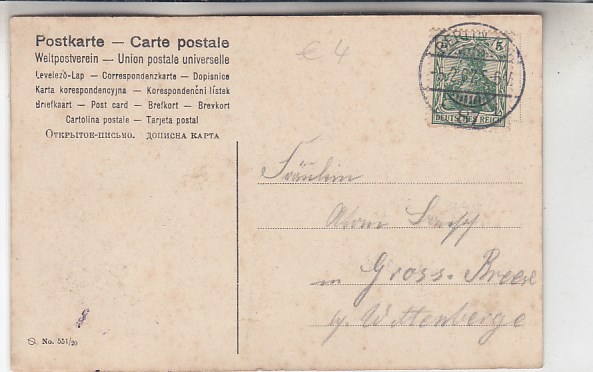 Postkarte — Carte postale
Weltpostverein — Union postale universelle
Levelező-Lap — Correspondenzkarte — Dopisnice
Karta korespondencyjna — Korespondenční lístek
Briefkaart — Post card — Brefkort — Brevkort
Cartolina postale — Tarjeta postal
Открытое-письмо. дописна карта
€ 4
BERLIN
DEUTSCHES REICH
5
Fräulein
in Gross-Breese
b/ Wittenberge
No. 551/20